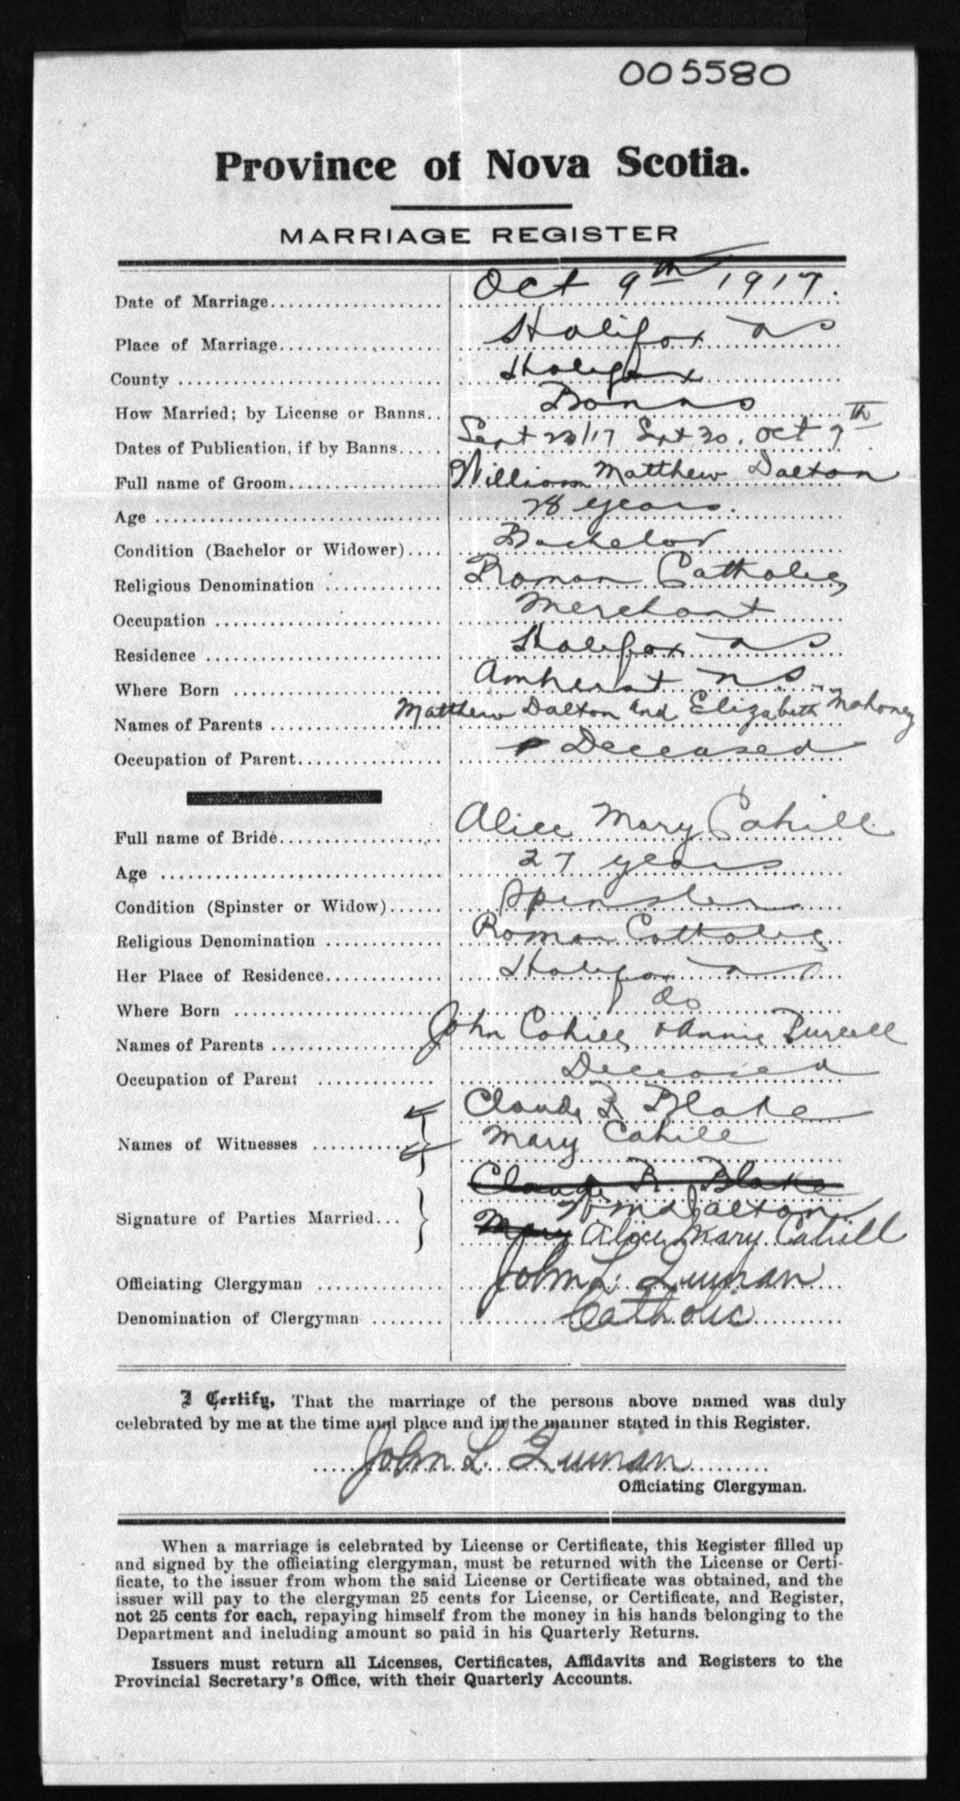 005580
Province of Nova Scotia.
MARRIAGE REGISTER
Date of Marriage................... Oct 9th 1917.
Place of Marriage.................. Halifax NS
County ............................ Halifax
How Married; by License or Banns.. Banns
Dates of Publication, if by Banns..... Sept 23/17 Sept 30. Oct 7th
Full name of Groom................. William Matthew Dalton
Age ............................... 28 years.
Condition (Bachelor or Widower).... Bachelor
Religious Denomination ............ Roman Catholic
Occupation ........................ Merchant
Residence ......................... Halifax NS
Where Born ........................ Amherst NS.
Names of Parents .................. Matthew Dalton and Elizabeth Mahoney
Occupation of Parent............... Deceased
Full name of Bride................. Alice Mary Cahill
Age ............................... 27 years
Condition (Spinster or Widow)...... Spinster
Religious Denomination ............ Roman Catholic
Her Place of Residence............. Halifax NS
Where Born ........................ do
Names of Parents .................. John Cahill & Annie Purcell
Occupation of Parent .............. Deceased
Claude R Blake
Names of Witnesses .......... Mary Cahill
Claude R. Blake
Wm Dalton
Signature of Parties Married...
Mary Alice Mary Cahill
Officiating Clergyman ............. John L. Quinan
Denomination of Clergyman ........ Catholic
I Certify, That the marriage of the persons above named was duly
celebrated by me at the time and place and in the manner stated in this Register.
John L. Quinan
Officiating Clergyman.
When a marriage is celebrated by License or Certificate, this Register filled up
and signed by the officiating clergyman, must be returned with the License or Certi-
ficate, to the issuer from whom the said License or Certificate was obtained, and the
issuer will pay to the clergyman 25 cents for License, or Certificate, and Register,
not 25 cents for each, repaying himself from the money in his hands belonging to the
Department and including amount so paid in his Quarterly Returns.
Issuers must return all Licenses, Certificates, Affidavits and Registers to the
Provincial Secretary's Office, with their Quarterly Accounts.